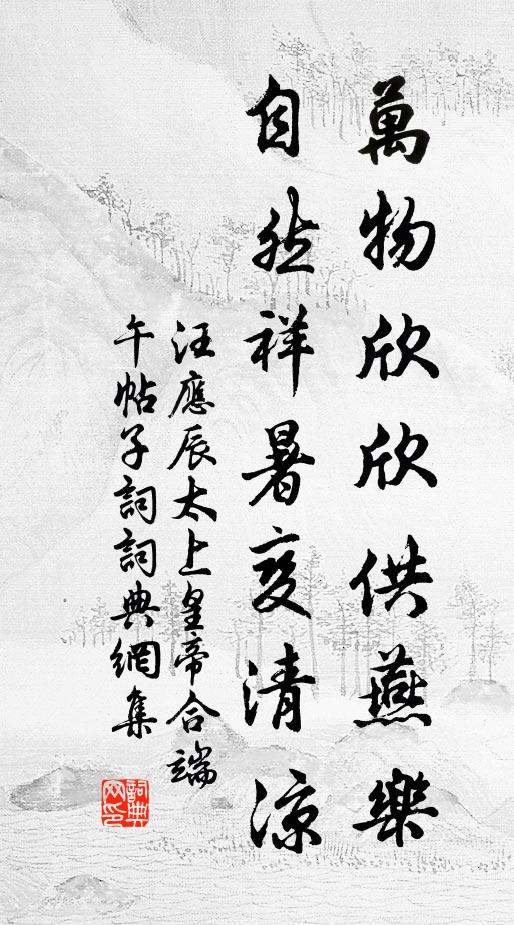 萬物欣欣供燕樂
自然祥暑變清涼
汪應辰太上皇帝合端
午帖子詞詞典網集
詞典
网印